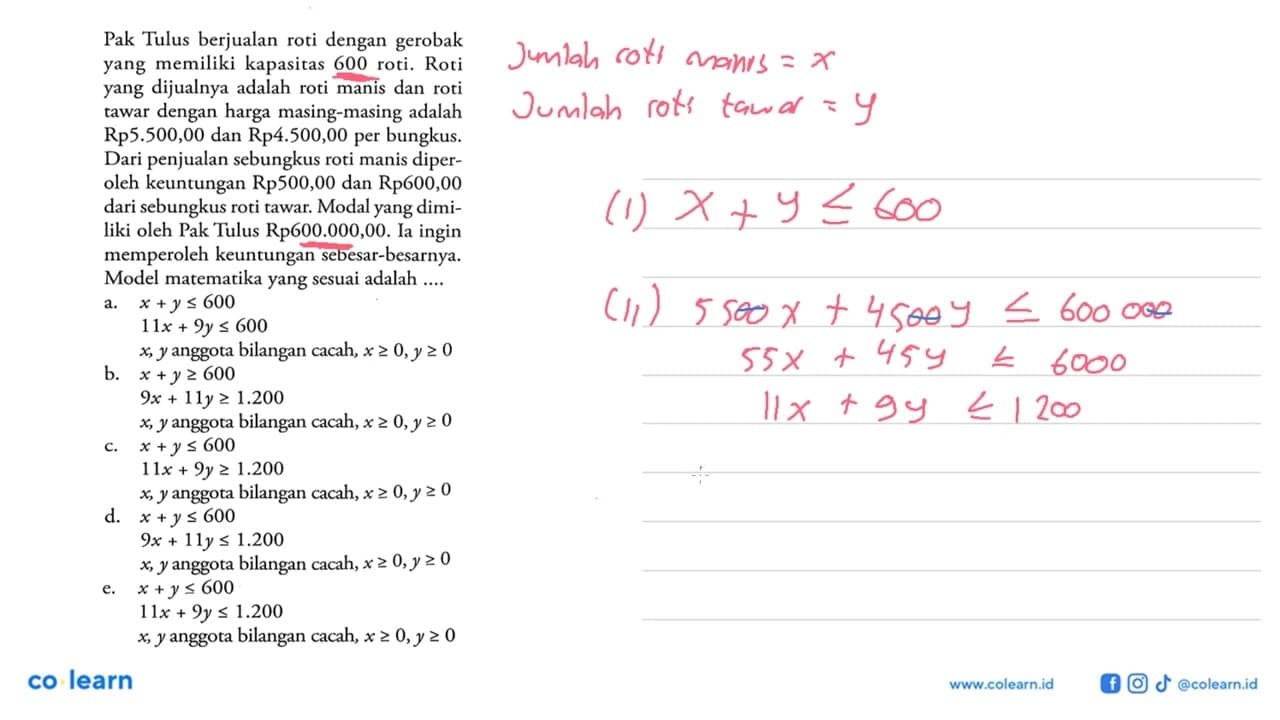 Pak Tulus berjualan roti dengan gerobak
yang memiliki kapasitas 600 roti. Roti
yang dijualnya adalah roti manis dan roti
tawar dengan harga masing-masing adalah
Rp5.500,00 dan Rp4.500,00 per bungkus.
Dari penjualan sebungkus roti manis diper-
oleh keuntungan Rp500,00 dan Rp600,00
dari sebungkus roti tawar. Modal yang dimi-
liki oleh Pak Tulus Rp600.000,00. Ia ingin
memperoleh keuntungan sebesar-besarnya.
Model matematika yang sesuai adalah ....
a. x + y ≤ 600
11x + 9y ≤ 600
x, y anggota bilangan cacah, x ≥ 0, y ≥ 0
b. x + y ≥ 600
9x + 11y ≥ 1.200
x, y anggota bilangan cacah, x ≥ 0, y ≥ 0
c. x + y ≤ 600
11x + 9y ≥ 1.200
x, y anggota bilangan cacah, x ≥ 0, y ≥ 0
d. x + y ≤ 600
9x + 11y ≤ 1.200
x, y anggota bilangan cacah, x ≥ 0, y ≥ 0
e. x + y ≤ 600
11x + 9y ≤ 1.200
x, y anggota bilangan cacah, x ≥ 0, y ≥ 0
Jumlah roti manis = x
Jumlah roti tawar = y
(1) x + y ≤ 600
(11) 5500x + 4500y ≤ 600 000
55x + 45y ≤ 6000
11x + 9y ≤ 1200
co learn
www.colearn.id
@colearn.id